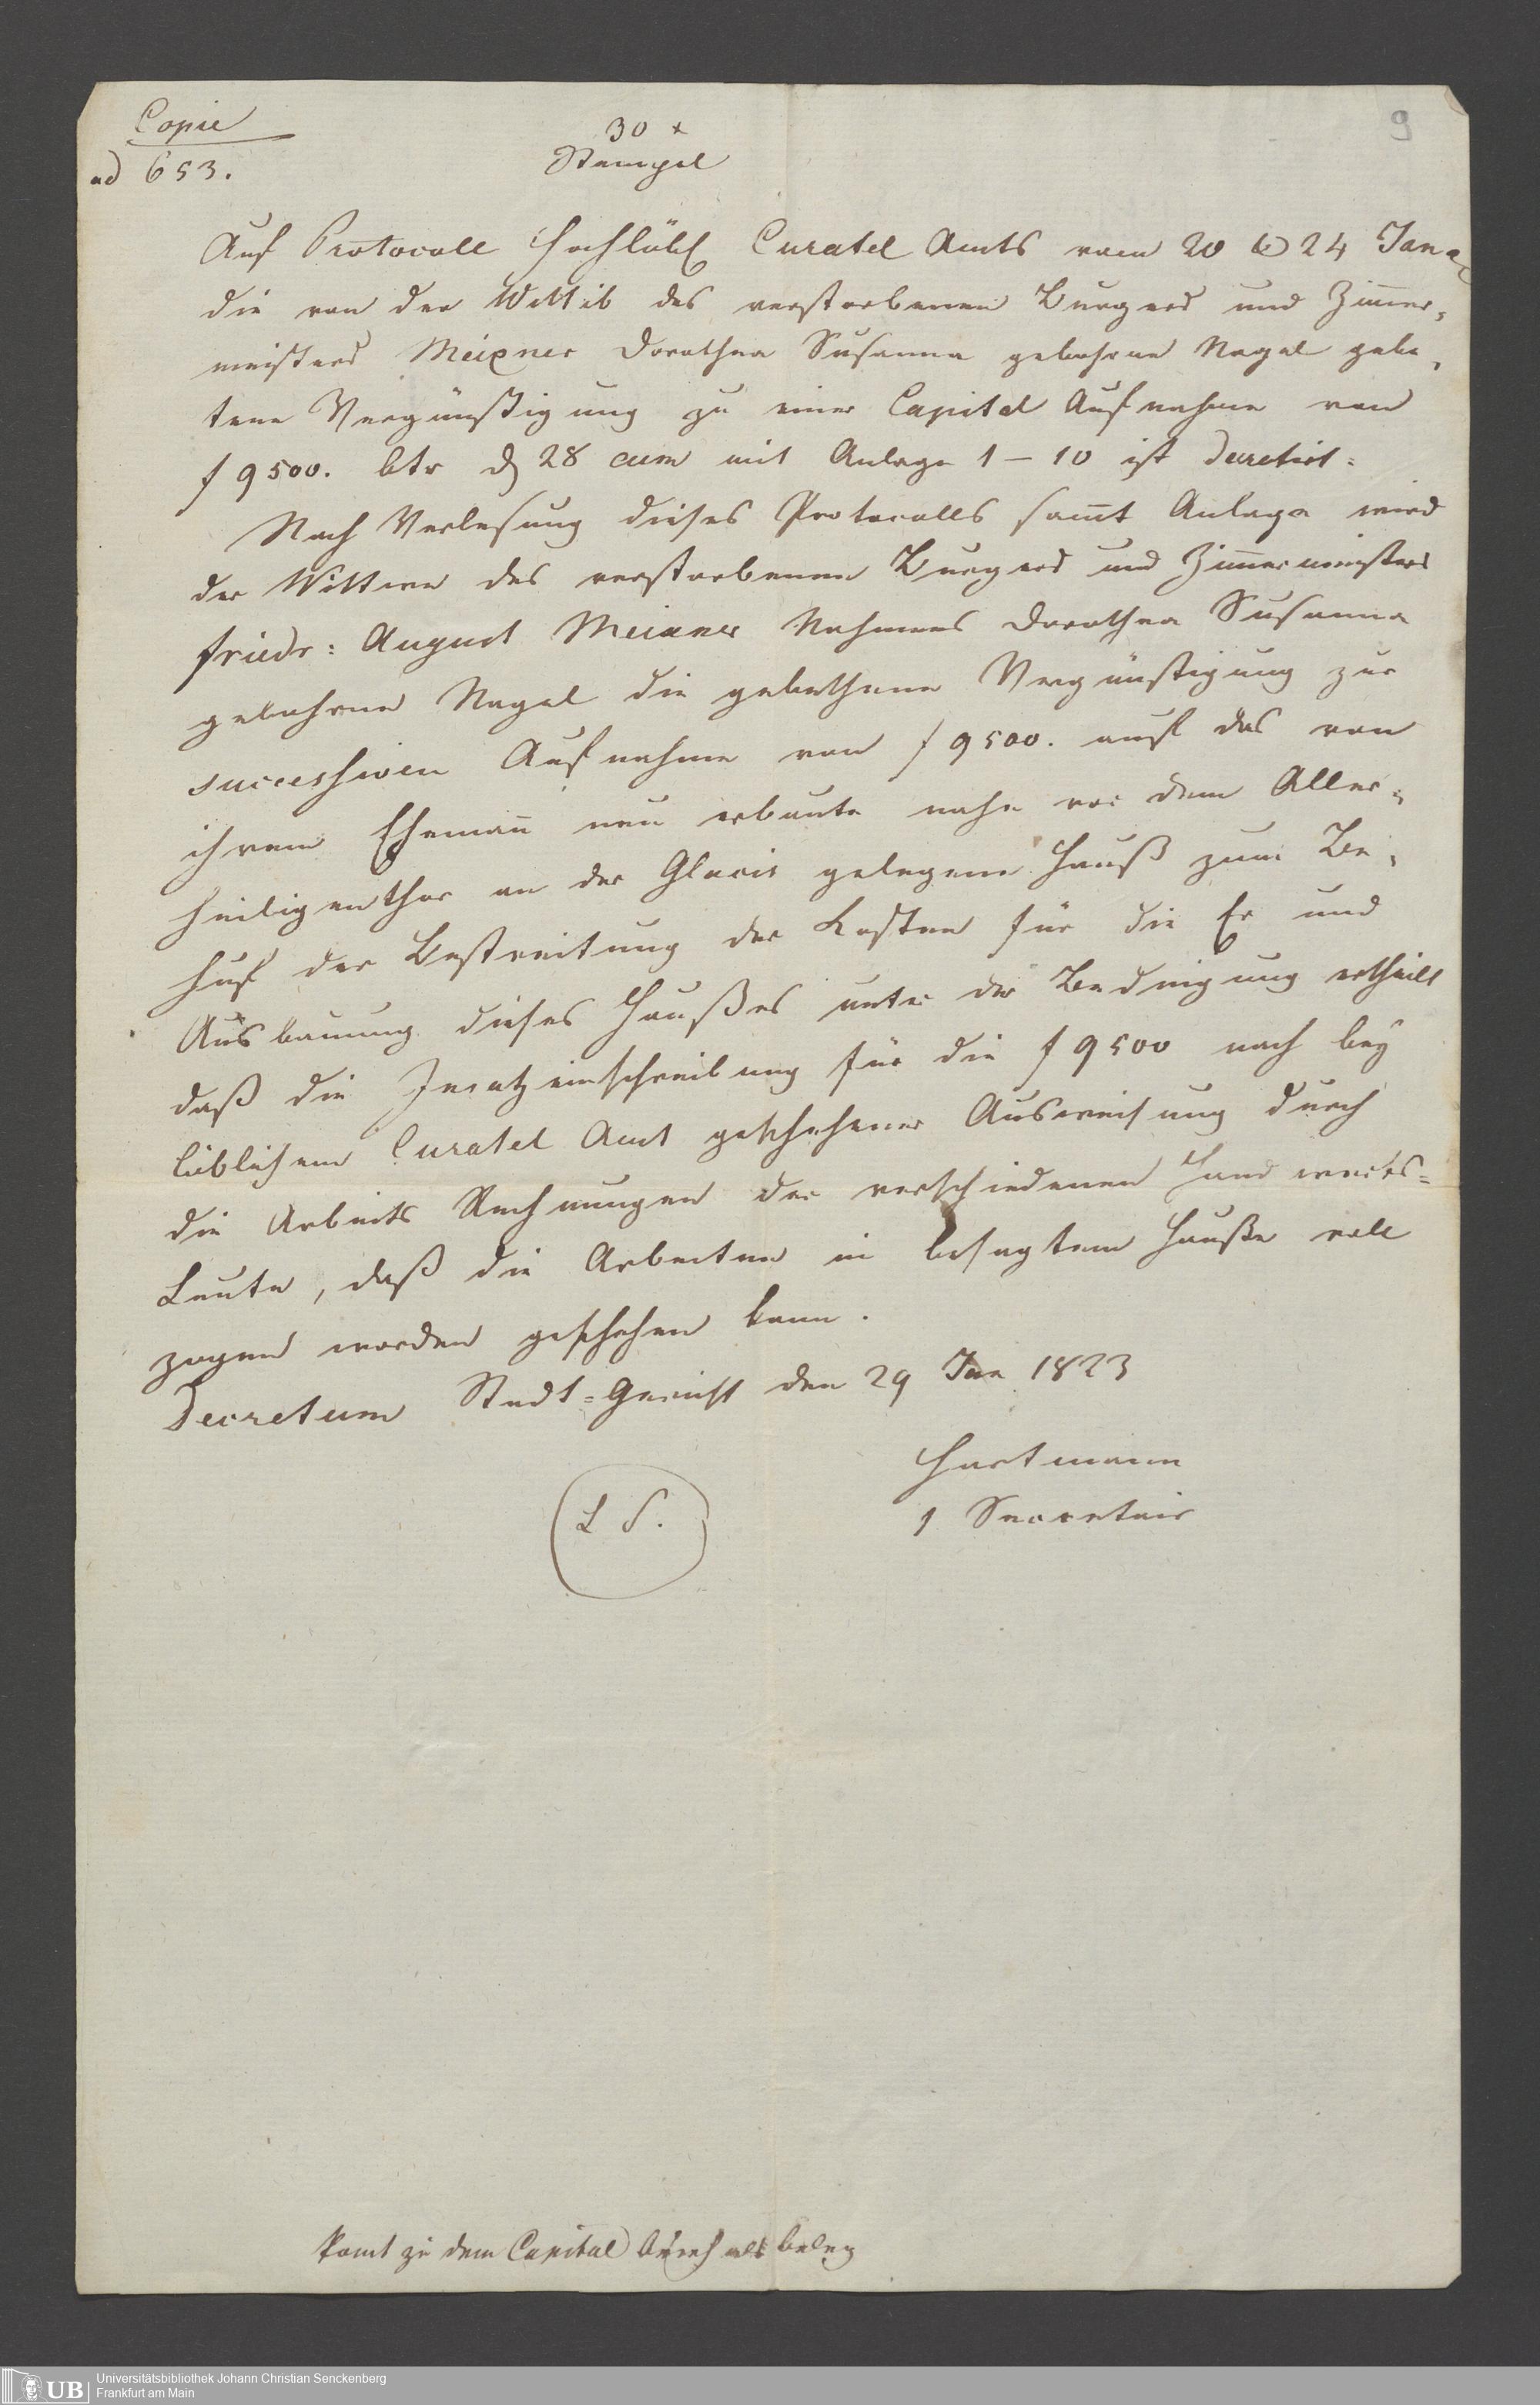 Copie
ad 653.
30 x
Stempel
9
Auf Protocoll Hochlöbl Curatel Amts vom 20 & 24 Jan a
die von der Wittib des verstorbenen Burgers und Zim̄er-
meisters Meixner Dorothea Susanna gebohrne Nagel gebe-
tene Vergünstigung zu einer Capital Aufnahme von
f 9500. btr d 28 cum mit Anlage 1 – 10 ist decretirt:
Nach Verlesung dieses Protocolls sam̄t Anlage wird
der Wittwe des verstorbenen Burgers und Zim̄ermeisters
Friedr: August Meixner Nahmens Dorothea Susanna
gebohrne Nagel die gebethene Vergünstigung zur
successiven Aufnahme von f 9500. auf das von
ihrem Eheman̄ neu erbaute nahe vor dem Aller-
heiligenthor an der Glacis gelegene Hauß zum Be-
huf der Bestreitung der Kosten für die Er und
Ausbauung dieses Haußes unter der Bedingung ertheilt
daß die Insatzeinschreibung für die f 9500 nach bey
löblichem Curatel Amt geschehener Ausweisung durch
die Arbeits Rechnungen der verschiedenen Handwerks-
Leute, daß die Arbeiten in besagtem Hauße voll
zogen worden geschehen kann.
Decretum Stadt-Gericht den 29 Jan 1823
Hartmann
1 Secretair
L S.
kom̄t zu dem Capital Buch als Beleg
UB
Universitätsbibliothek Johann Christian Senckenberg
Frankfurt am Main